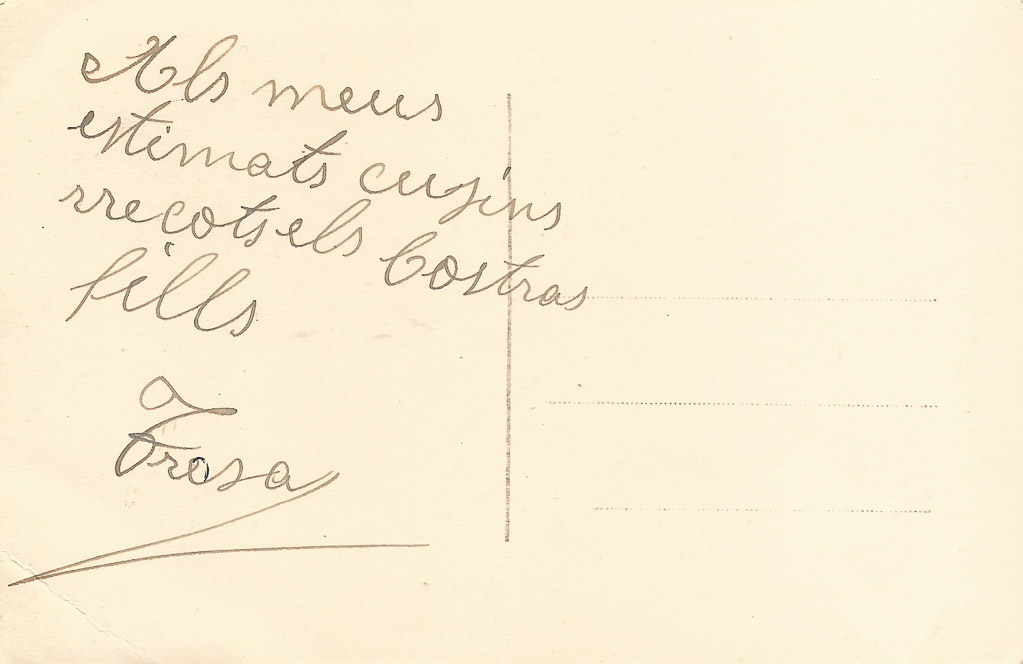 Als meus
estimats cusins
rrecotsels bostras
fills
Frosa